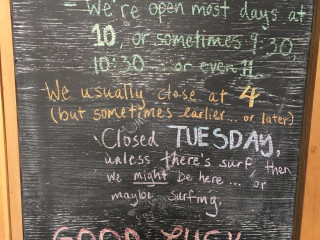 - We're open most days at
10, or sometimes 9:30,
10:30... or even 11
We usually close at 4
(but sometimes earlier... or later)
Closed TUESDAY,
unless there's surf, then
we might be here... or
maybe surfing.
GOOD LUCK